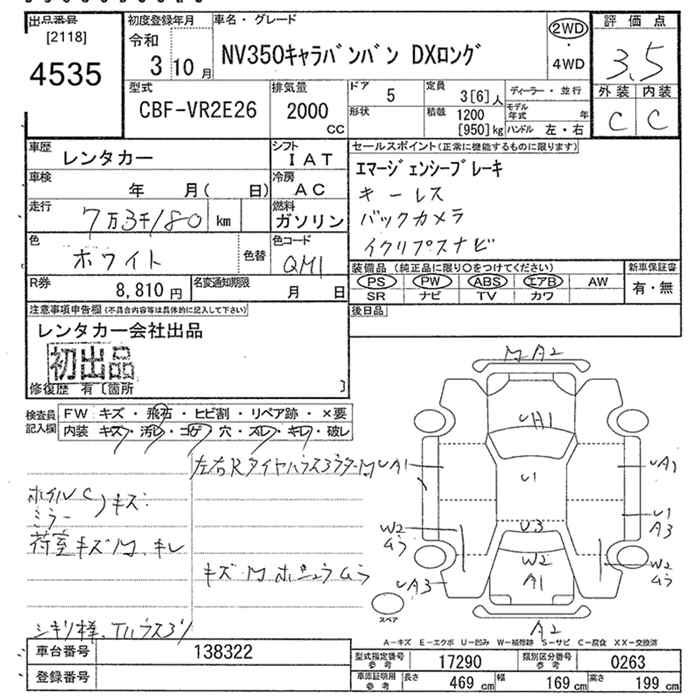 出品番号
[2118]
4535
初度登録年月
令和
3 10 月
車名・グレード
NV350キャラバンバン DXロング
2WD
・
4WD
評価点
3.5
外装 内装
C C
型式
CBF-VR2E26
排気量
2000
CC
ドア
5
形状
定員
3[6]人
積載
1200
[950]kg
ディーラー・並行
モデル年式 年
ハンドル 左・右
車歴
レンタカー
シフト
I AT
車検
年 月( 日)
冷房
AC
走行
7万3千180 km
燃料
ガソリン
色
ホワイト
色替
色コード
QM1
R券
8,810 円
名変通知期限
月 日
セールスポイント(正常に機能するものに限ります)
エマージェンシーブレーキ
キーレス
バックカメラ
イクリプスナビ
装備品(純正品に限り○をつけてください)
PS PW ABS エアB AW
SR ナビ TV カワ
新車保証書
有・無
後日品
注意事項申告欄(不具合内容等は具体的に記入して下さい)
レンタカー会社出品
初出品
修復歴 有〔箇所 〕
検査員
記入欄
FW キズ・飛石・ヒビ割・リペア跡・×要
内装 キズ・汚レ・コゲ・穴・スレ・キレ・破レ
左右Rタイヤハウス
ホイルC
ミラー
キズ
荷室キズM、キレ
キズM
M A2
UH1
UA1
U1
UA1
U1
A3
U3
W2
ムラ
W2
A1
W2
ムラ
UA3
A2
スペア
A-キズ E-エクボ U-凹み W-補修跡 S-サビ C-腐食 XX-交換済
車台番号
138322
登録番号
型式指定番号
参考
17290
類別区分番号
参考
0263
車庫証明用
参考
長さ 469 cm 幅 169 cm 高さ 199 cm